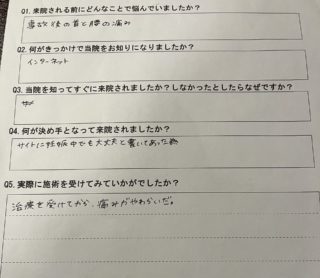 Q1. 来院される前にどんなことで悩んでいましたか?
事故後の首と腰の痛み
Q2. 何がきっかけで当院をお知りになりましたか?
インターネット
Q3. 当院を知ってすぐに来院されましたか?しなかったとしたらなぜですか?
Q4. 何が決め手となって来院されましたか?
サイトに妊娠中でも大丈夫と書いてあった為
Q5. 実際に施術を受けてみていかがでしたか?
治療を受けてから、痛みがやわらいだ。